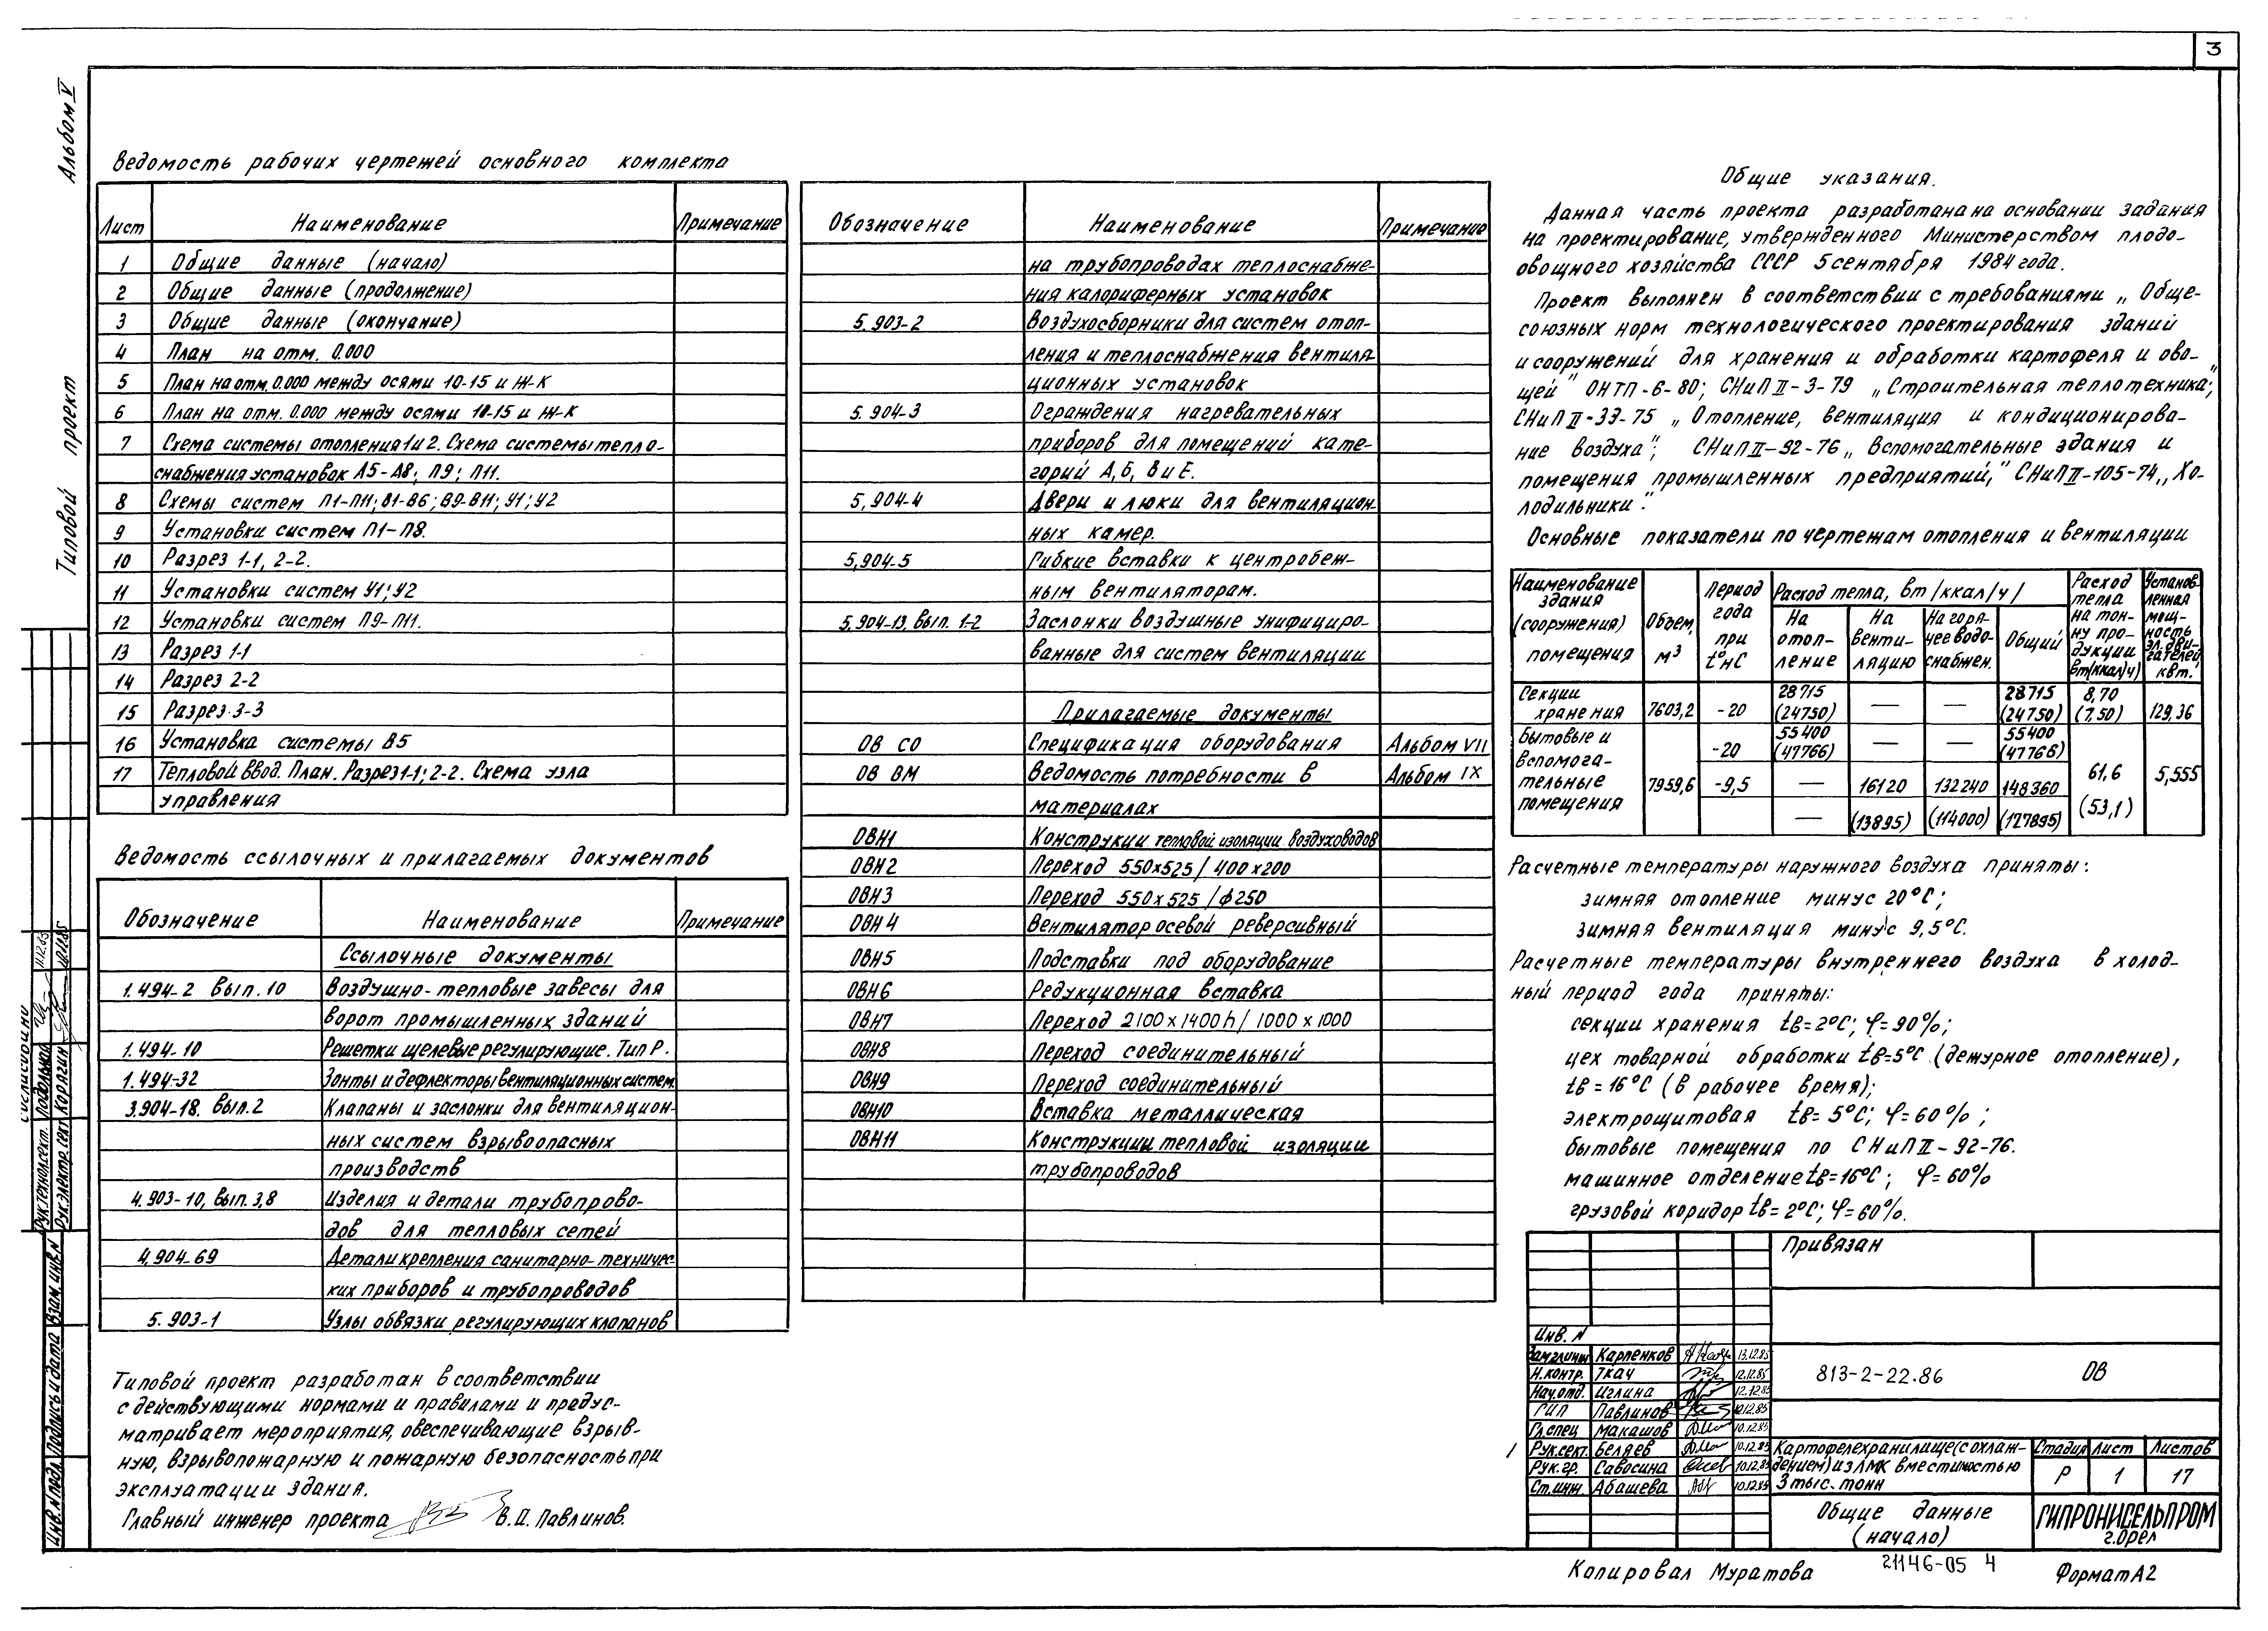 3
Альбом V
Типовой проект
Ведомость рабочих чертежей основного комплекта
Лист Наименование Примечание
1 Общие данные (начало)
2 Общие данные (продолжение)
3 Общие данные (окончание)
4 План на отм. 0.000
5 План на отм. 0.000 между осями 10-15 и Ж-К
6 План на отм. 0.000 между осями 10-15 и Ж-К
7 Схема системы отопления 1 и 2. Схема системы тепло-
снабжения установок А5-А8; П9; П11.
8 Схемы систем П1-П11; В1-В6; В9-В11; У1; У2
9 Установки систем П1-П8.
10 Разрез 1-1, 2-2.
11 Установки систем У1; У2
12 Установки систем П9-П11.
13 Разрез 1-1
14 Разрез 2-2
15 Разрез 3-3
16 Установка системы В5
17 Тепловой ввод. План. Разрез 1-1; 2-2. Схема узла
управления
Ведомость ссылочных и прилагаемых документов
Обозначение Наименование Примечание
Ссылочные документы
1.494-2 вып. 10 Воздушно-тепловые завесы для
ворот промышленных зданий
1.494-10 Решетки щелевые регулирующие. Тип Р.
1.494-32 Зонты и дефлекторы вентиляционных систем.
3.904-18. вып. 2 Клапаны и заслонки для вентиляцион-
ных систем взрывоопасных
производств
4.903-10, вып. 3,8 Изделия и детали трубопрово-
дов для тепловых сетей
4.904-69 Детали крепления санитарно-техничес-
ких приборов и трубопроводов
5.903-1 Узлы обвязки регулирующих клапанов
Типовой проект разработан в соответствии
с действующими нормами и правилами и предус-
матривает мероприятия, обеспечивающие взрыв-
ную, взрывопожарную и пожарную безопасность при
эксплуатации здания.
Главный инженер проекта В.П. Павлинов.
Обозначение Наименование Примечание
на трубопроводах теплоснабже-
ния калориферных установок
5.903-2 Воздухосборники для систем отоп-
ления и теплоснабжения вентиля-
ционных установок
5.904-3 Ограждения нагревательных
приборов для помещений кате-
горий А, Б, В и Е.
5.904-4 Двери и люки для вентиляцион-
ных камер.
5.904-5 Гибкие вставки к центробеж-
ным вентиляторам.
5.904-13, вып. 1-2 Заслонки воздушные унифициро-
ванные для систем вентиляции
Прилагаемые документы
ОВ СО Спецификация оборудования Альбом VII
ОВ ВМ Ведомость потребности в Альбом IX
материалах
ОВН1 Конструкции тепловой изоляции воздуховодов
ОВН2 Переход 550х525 / 400х200
ОВН3 Переход 550х525 / ф250
ОВН4 Вентилятор осевой реверсивный
ОВН5 Подставки под оборудование
ОВН6 Редукционная вставка
ОВН7 Переход 2100х1400h / 1000х1000
ОВН8 Переход соединительный
ОВН9 Переход соединительный
ОВН10 Вставка металлическая
ОВН11 Конструкции тепловой изоляции
трубопроводов
Общие указания.
Данная часть проекта разработана на основании задания
на проектирование, утвержденного Министерством плодо-
овощного хозяйства СССР 5 сентября 1984 года.
Проект выполнен в соответствии с требованиями „Обще-
союзных норм технологического проектирования зданий
и сооружений для хранения и обработки картофеля и ово-
щей" ОНТП-6-80; СНиП II-3-79 „Строительная теплотехника";
СНиП II-33-75 „Отопление, вентиляция и кондиционирова-
ние воздуха"; СНиП II-92-76 „Вспомогательные здания и
помещения промышленных предприятий," СНиП II-105-74 „Хо-
лодильники".
Основные показатели по чертежам отопления и вентиляции
Наименование здания (сооружения) помещения
Объем, м3
Период года при t°нС
Расход тепла, вт /ккал/ч/
На отоп-ление
На венти-ляцию
На горя-чее водо-снабжен.
Общий
Расход тепла на тон-ну про-дукции вт(ккал/ч)
Установ-ленная мощ-ность эл. дви-гателей, квт.
Секции 28715 28715 8,70
хранения 7603,2 -20 (24750) — — (24750) (7.50) 129,36
Бытовые и вспомога-тельные помещения 7959,6
-20 55400 (47766) — — 55400 (47766)
-9,5 — 16120 132240 148360 61,6 5,555
— (13895) (114000) (127895) (53,1)
Расчетные температуры наружного воздуха приняты:
зимняя отопление минус 20°С;
зимняя вентиляция минус 9,5°С.
Расчетные температуры внутреннего воздуха в холод-
ный период года приняты:
секции хранения tв=2°С; φ=90%;
цех товарной обработки tв=5°С (дежурное отопление),
tв=16°С (в рабочее время);
электрощитовая tв=5°С; φ=60%;
бытовые помещения по СНиП II-92-76.
машинное отделение tв=16°С; φ=60%
грузовой коридор tв=2°С; φ=60%.
Привязан
Инв. N
Зам.гл.инж Карпенков 13.12.85
Н.контр. Ткач 12.12.85
Нач.отд. Иглина 12.12.85
ГИП Павлинов 10.12.85
Гл.спец Макашов 10.12.85
Рук.сект. Беляев 10.12.85
Рук.гр. Савосина 10.12.85
Ст.инж. Абашева 10.12.85
813-2-22.86 ОВ
Картофелехранилище (с охлаж-
дением) из ЛМК вместимостью
3 тыс. тонн
Стадия Лист Листов
Р 1 17
Общие данные
(начало)
ГИПРОНИСЕЛЬПРОМ
г. Орел
Копировал Муратова
21146-05 4
Формат А2
Согласовано
Рук.технол.сект. Подольной 11.12.85
Рук.электр.сект Корягин 10.12.85
Взам.инв.N
Подпись и дата
Инв.N подл.